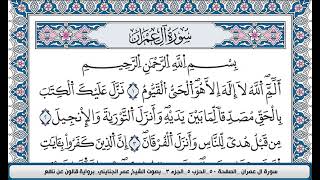 سُورَةُ آلِ عِمْرَانَ
بِسْمِ اللَّهِ الرَّحْمَٰنِ الرَّحِيمِ
أَلَٓمِّٓ اللَّهُ لَا إِلَٰهَ إِلَّا هُوَ الْحَيُّ الْقَيُّومُ ١ نَزَّلَ عَلَيْكَ الْكِتَٰبَ
بِالْحَقِّ مُصَدِّقًا لِّمَا بَيْنَ يَدَيْهِ وَأَنزَلَ التَّوْرَىٰةَ وَالْإِنجِيلَ ٢
مِن قَبْلُ هُدًى لِّلنَّاسِ وَأَنزَلَ الْفُرْقَانَ ٣ إِنَّ الَّذِينَ كَفَرُواْ بِـَٔايَٰتِ
سورة آل عمران . الصفحة ٥٠ . الحزب ٥ . الجزء ٣ . بصوت الشيخ عمر الجنايني . برواية قالون عن نافع